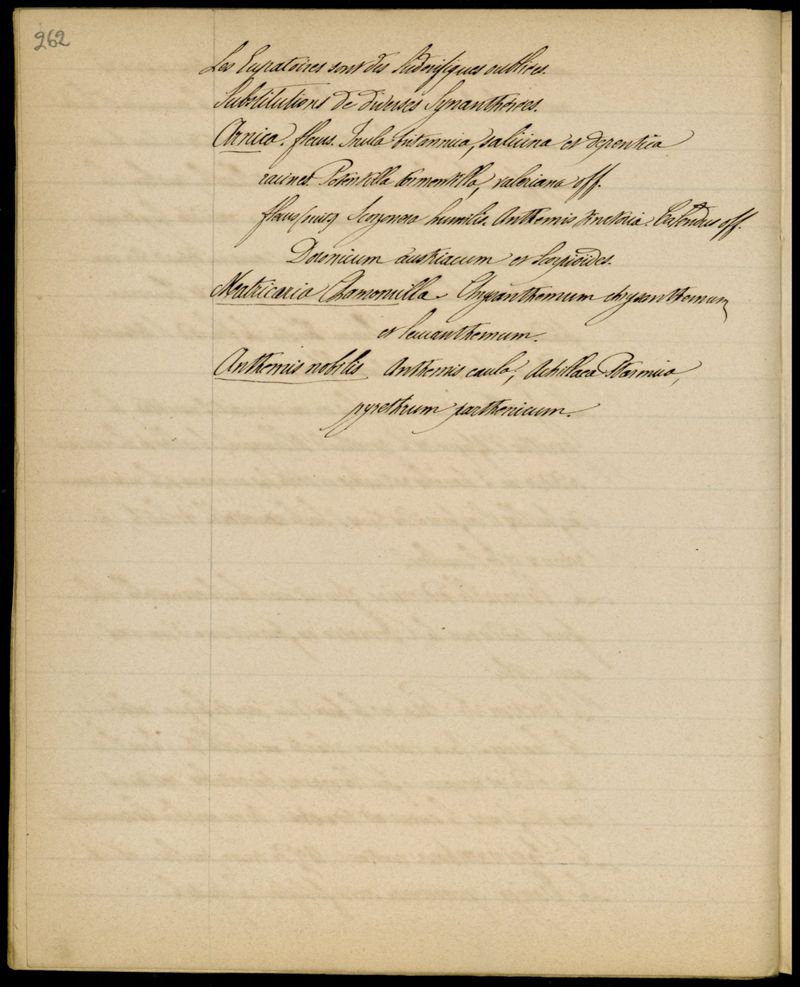 262
Les Eupatoires sont des Sudorifiques oubliées.
Substitutions de diverses Synanthérées.
Arnica. fleurs. Inula britannica, salicina et dysentica
racines. Potentilla tormentilla, valeriana off.
fleurs Scorzonera humilis. Anthemis tinctoria. Calendus off.
Doronicum austriacum et Scorpioides.
Matricaria Chamomilla. Chrysanthemum chrysanthemum
et leucanthemum.
Anthemis nobilis Anthemis caula, Achillaea Ptarmica,
pyrethrum parthenicum.